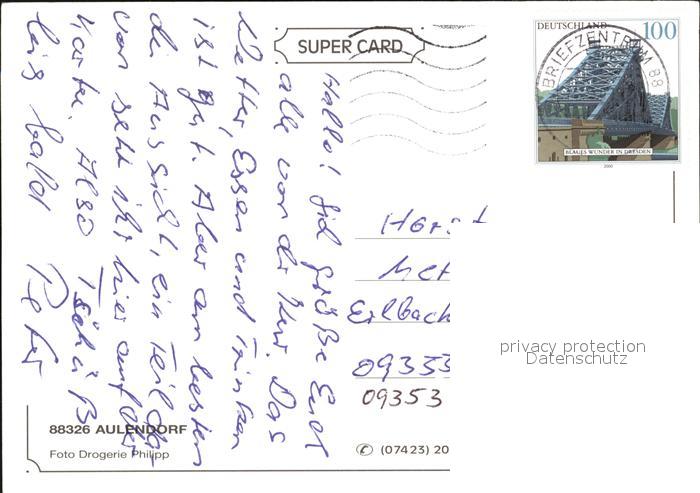 SUPER CARD
DEUTSCHLAND 100
BRIEFZENTRUM 88
BLAUES WUNDER IN DRESDEN
2000
Hallo! Ich grüße Euch
alle von der Kur. Das
Wetter, Essen und Trinken
ist gut. Aber am besten
die Aussicht, ein Teil da-
von seht ihr hier auf der
Karte. Also Tschüß
bis bald Peter
Erlbach
09353
09353
privacy protection
Datenschutz
88326 AULENDORF
Foto Drogerie Philipp
(07423) 20